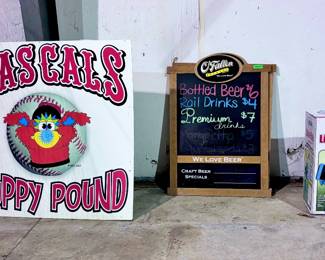 ASCALS
PPY POUND
O'Fallon
Bottled Beer $6
Rail Drinks $4
Premium $7
drinks
WE LOVE BEER
CRAFT BEER
SPECIALS